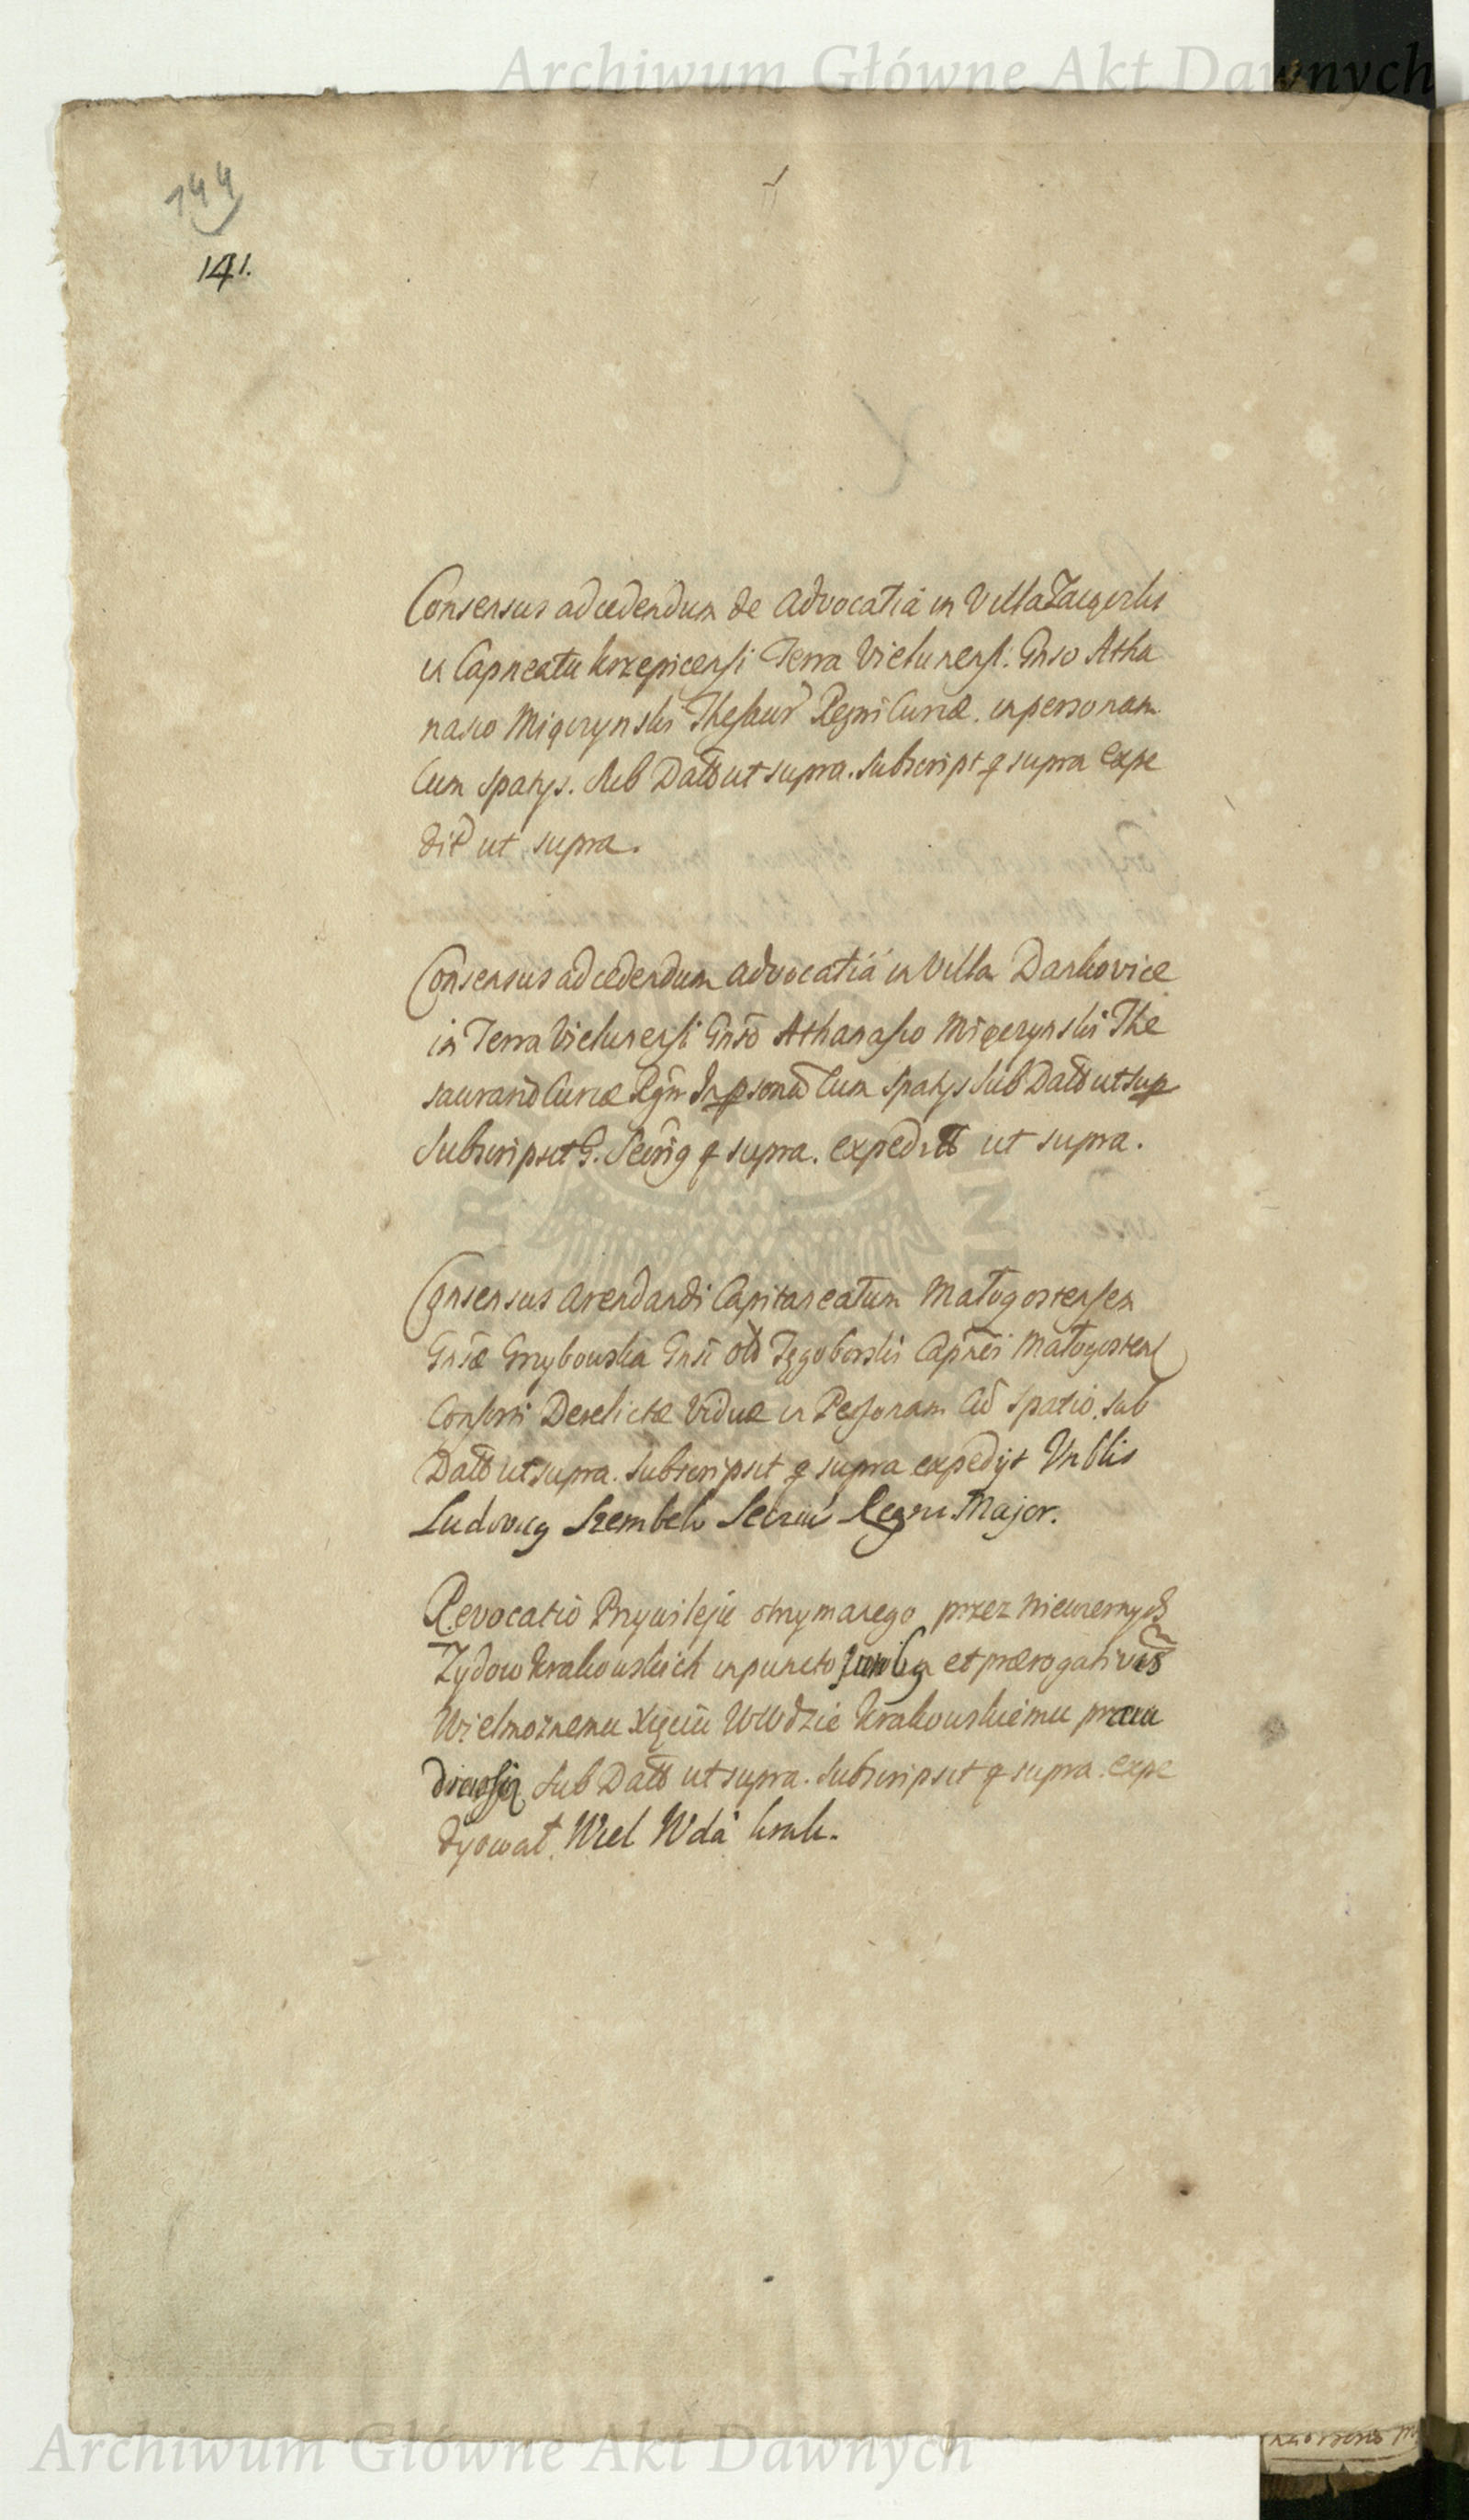 Archiwum Główne Akt Dawnych
144
141.
Consensus ad cedendum de Advocatia in Villa
in Capneatu krzepicensi Terra Vielunensi. Gnso Atha
nasio Miączynski Thesaur Regni Curiæ. in personam
Cum spatys. Sub Datt ut supra. Subscript q supra Expe
dit ut supra.
Consensus ad cedendum advocatiä in Villa Dankovice
in Terra Vielunensi Gnso Athanasio Miączynski The
saurario Curiæ Rgni In psonã Cum Spatys Sub Datt ut sup
Subscripsit G. q supra. expeditt ut supra.
Consensus Arendandi Capitaneatum Małogostensem
Gnsæ Grzybowska Gnsi olb Tęgoborski Capnei Małogosten
Consorti Derelictæ Viduæ in Personam Cũ spatio. Sub
Datt ut supra. Subscripsit q supra expedijt Vrblis
Ludovicg Szembek Secrius Regni Major.
Revocatio Przywileju otrzymanego przez niewiernych
Żydow krakowskich in puncto et prærogativæ
Wielmożnemu Xięciu WWdzie krakowskiemu præiu
Sub Datt ut supra. Subscripsit q supra. expe
dyował. Wiel Wda krak.
Archiwum Główne Akt Dawnych